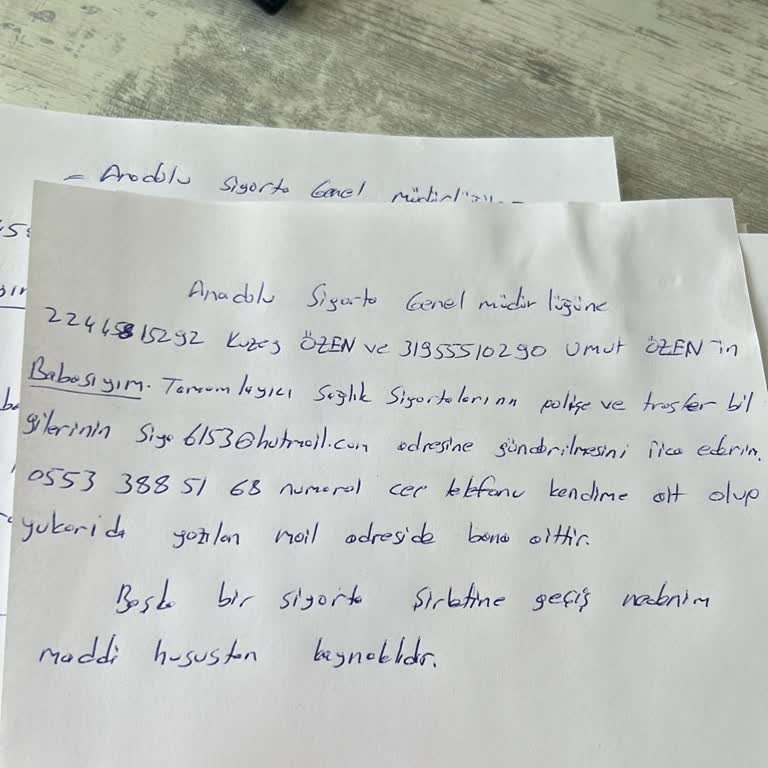 = Anadolu Sigorta Genel
Anadolu Sigorta Genel müdürlüğüne
22445815292 Kuzey ÖZEN ve 31955510290 Umut ÖZEN'in
Babasıyım. Tamamlayıcı Sağlık Sigortalarının poliçe ve trasfer bil
gilerinin Sigo6153@hotmail.com adresine gönderilmesini rica ederim.
0553 388 51 68 numaral cep telefonu kendime ait olup
yukarıda yazılan mail adreside bana aittir.
Başka bir sigorta şirketine geçiş nedenim
maddi husustan kaynaklıdır.